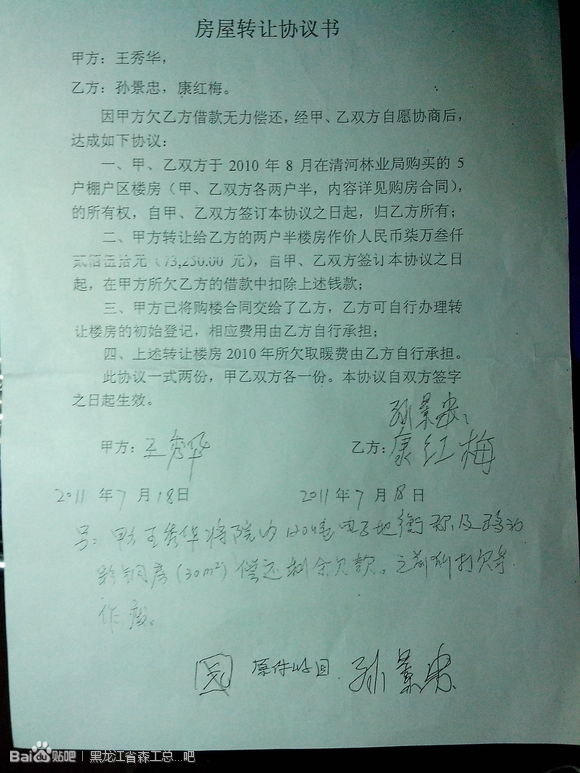 房屋转让协议书
甲方：王秀华，
乙方：孙景忠，康红梅。
因甲方欠乙方借款无力偿还，经甲、乙双方自愿协商后，
达成如下协议：
一、甲、乙双方于 2010 年 8 月在清河林业局购买的 5
户棚户区楼房（甲、乙双方各两户半，内容详见购房合同），
的所有权，自甲、乙双方签订本协议之日起，归乙方所有；
二、甲方转让给乙方的两户半楼房作价人民币柒万叁仟
贰佰伍拾元（73,250.00 元），自甲、乙双方签订本协议之日
起，在甲方所欠乙方的借款中扣除上述钱款；
三、甲方已将购楼合同交给了乙方，乙方可自行办理转
让楼房的初始登记，相应费用由乙方自行承担；
四、上述转让楼房 2010 年所欠取暖费由乙方自行承担。
此协议一式两份，甲乙双方各一份。本协议自双方签字
之日起生效。
孙景忠
甲方：王秀华 乙方：康红梅
2011 年 7 月 18 日 2011 年 7 月 18 日
另：甲方王秀华将院内120吨电子地衡称及移动
彩钢房（30m²）偿还剩余欠款。之前所打欠条
作废。
原件收回 孙景忠
Bai贴吧 | 黑龙江省森工总...吧